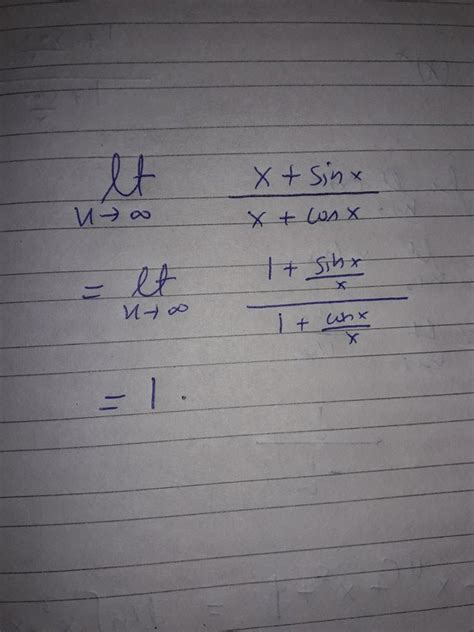 lt x→∞ x + sin x / x + cos x
= lt x→∞ 1 + sin x / x / 1 + cos x / x
= 1.